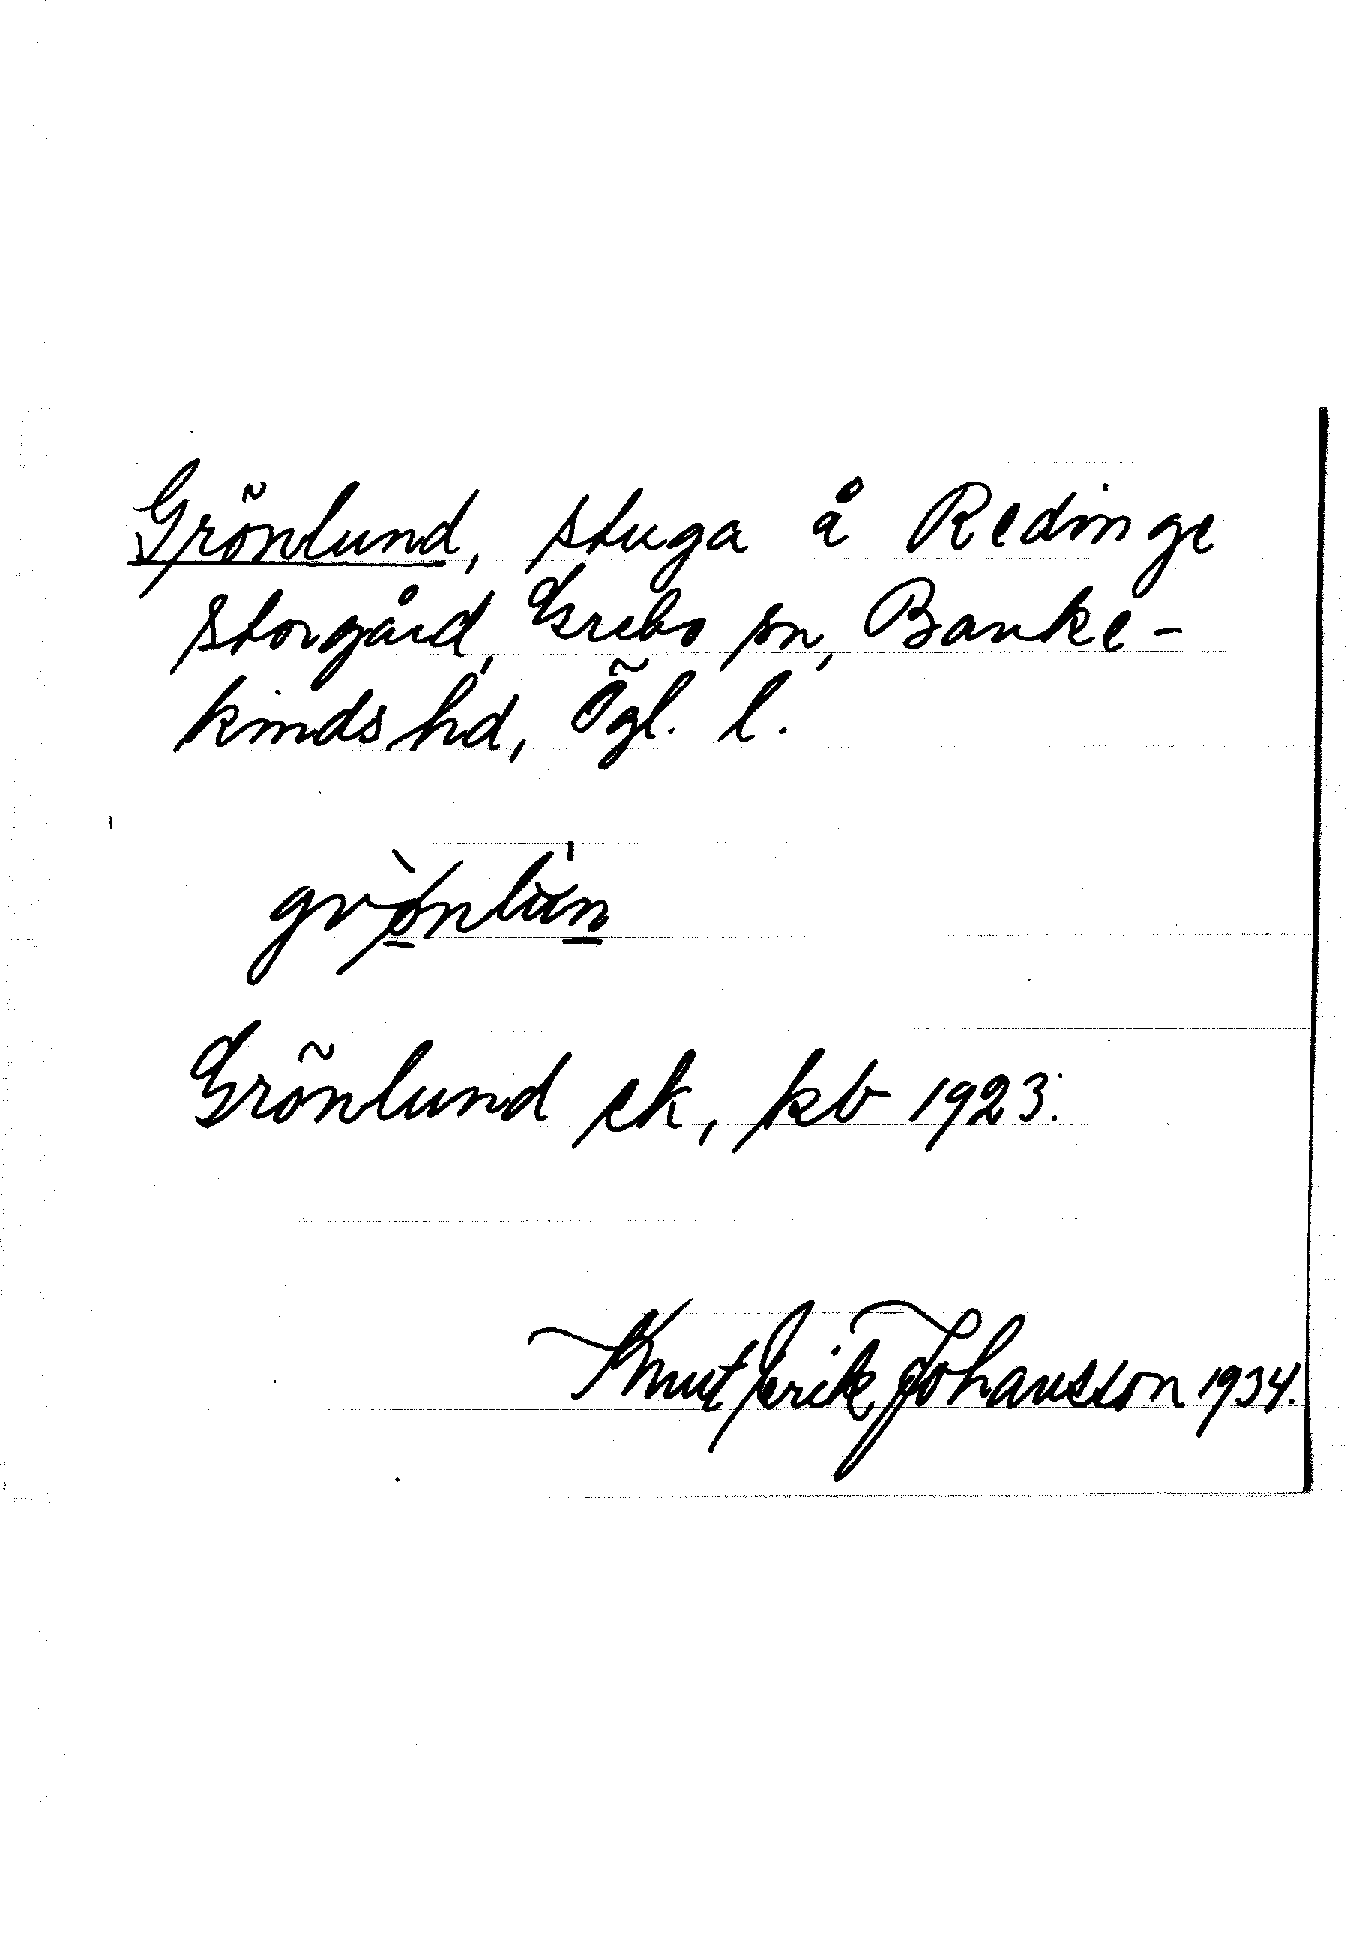 Grönlund, stuga å Redinge
storgård, Grebo sn, Banke-
kinds hd, Ögl. l.
Grönlund ek, kb 1923.
Knut Erik Johansson 1934.